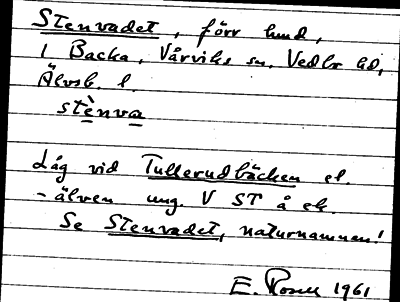 Stenvadet, förr lund,
1 Backa, Vårviks sn, Vedbo hd,
Älvsb. l.
stènva
Låg vid Tullerudbäcken el.
-älven ung. V ST å ek.
Se Stenvadet, naturnamnen!
E. 1961